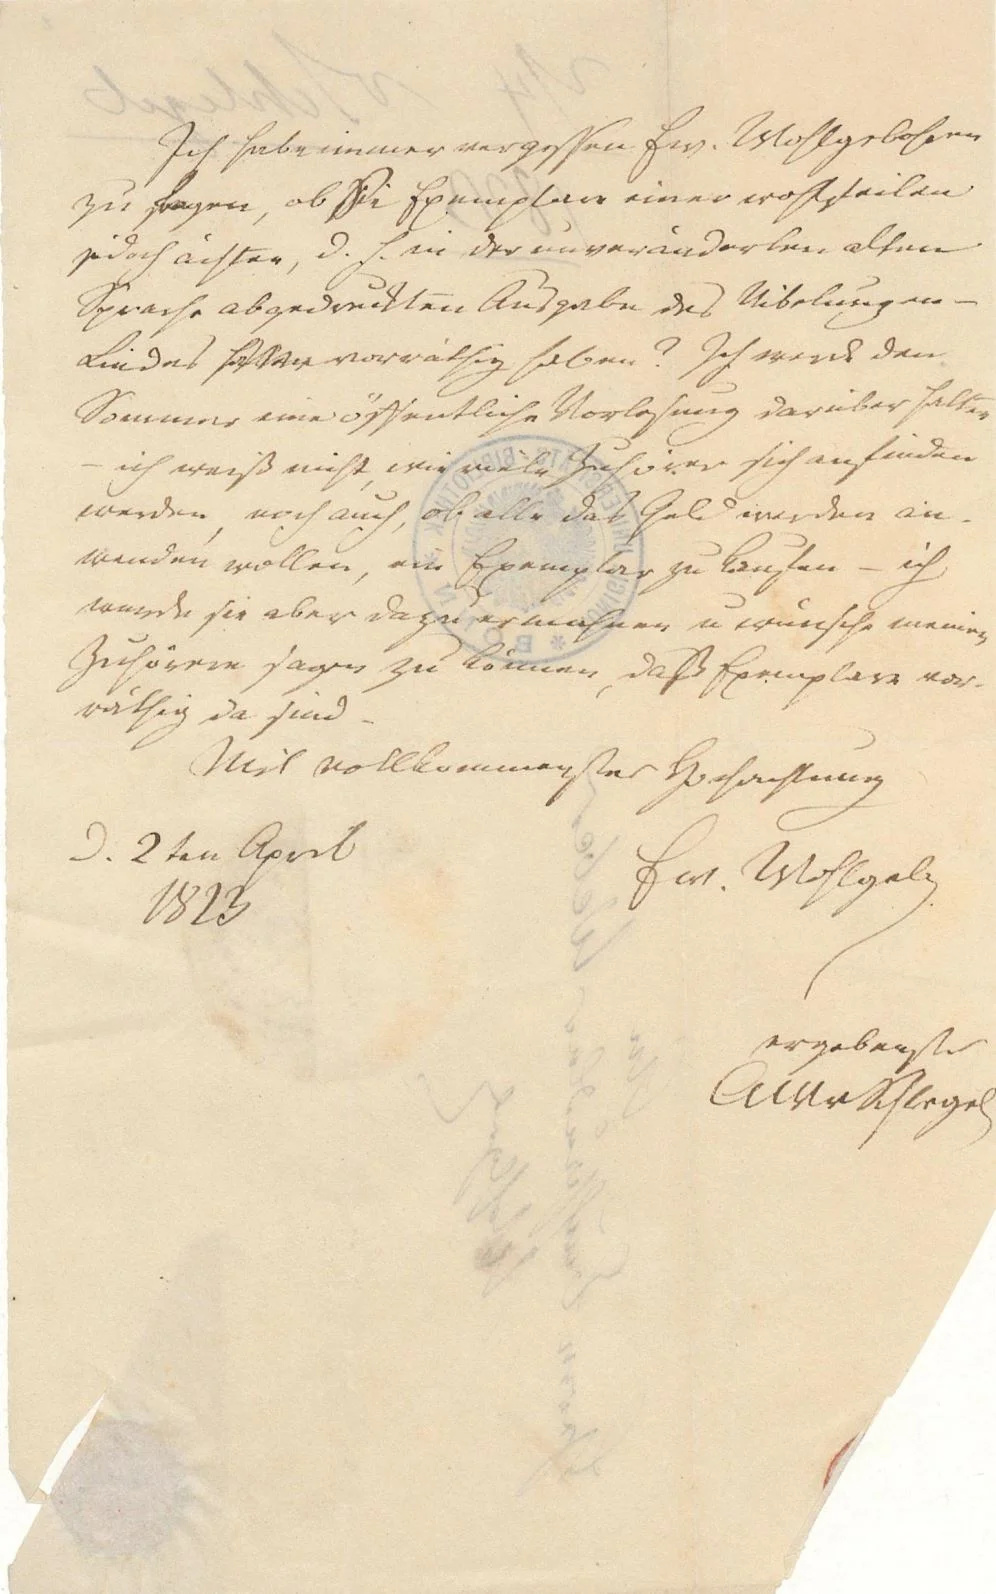 Ich habe immer vergessen Ew. Wohlgebohren
zu fragen, ob Sie Exemplare einer wohlfeilen
jedoch ächten, d. h. in der unveränderten alten
Sprache abgedruckten Ausgabe des Nibelungen-
Liedes vorräthig haben? Ich werde den
Sommer eine öffentliche Vorlesung darüber halten
– ich weiß nicht, wie viele Zuhörer sich anfinden
werden, noch auch, ob alle das Geld werden an-
wenden wollen, ein Exemplar zu kaufen – ich
werde sie aber dazu ermahnen u wünsche meinen
Zuhörern sagen zu können, daß Exemplare vor-
räthig da sind –
Mit vollkommenster Hochachtung
D. 2ten April
1823
Ew. Wohlgeb
ergebenster
AWvSchlegel